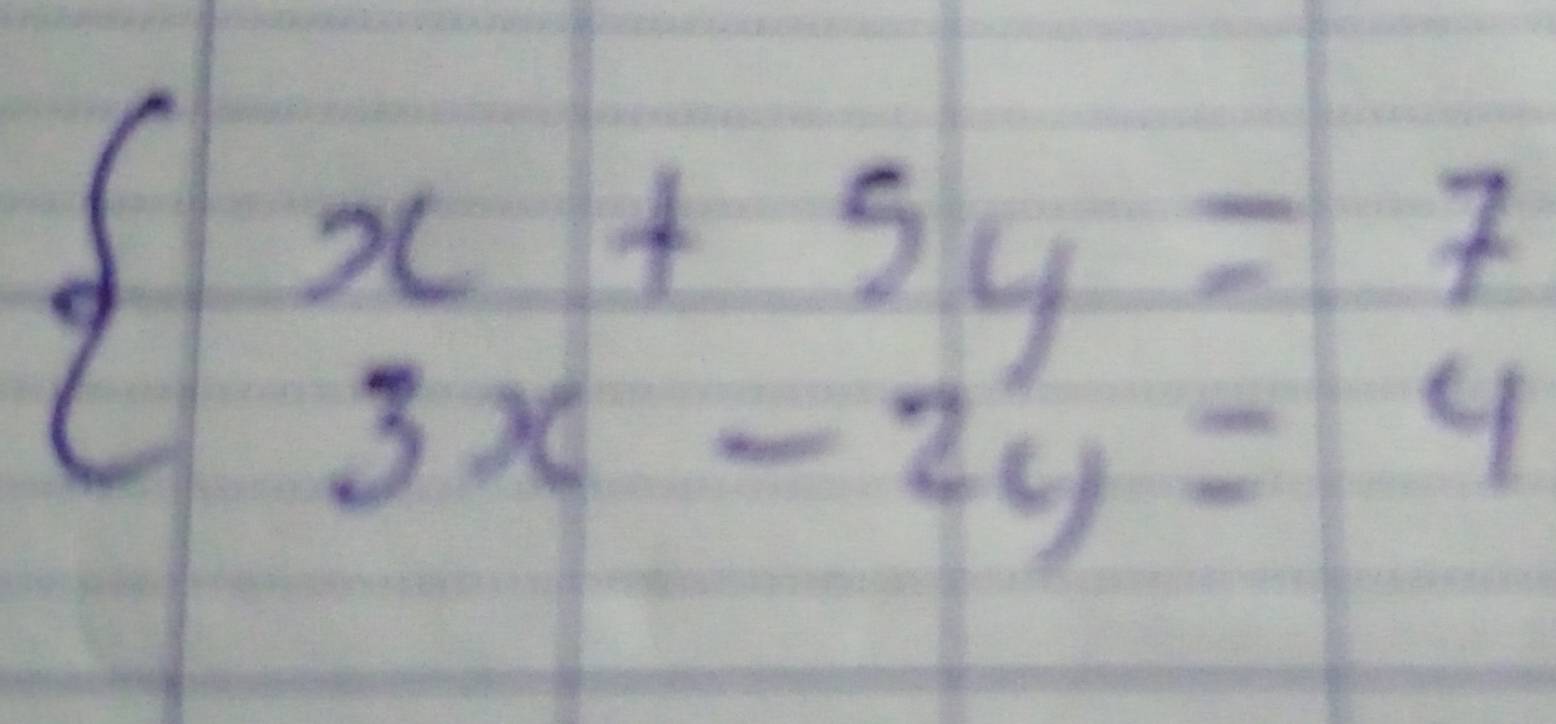 x + 5y = 7
3x - 2y = 4